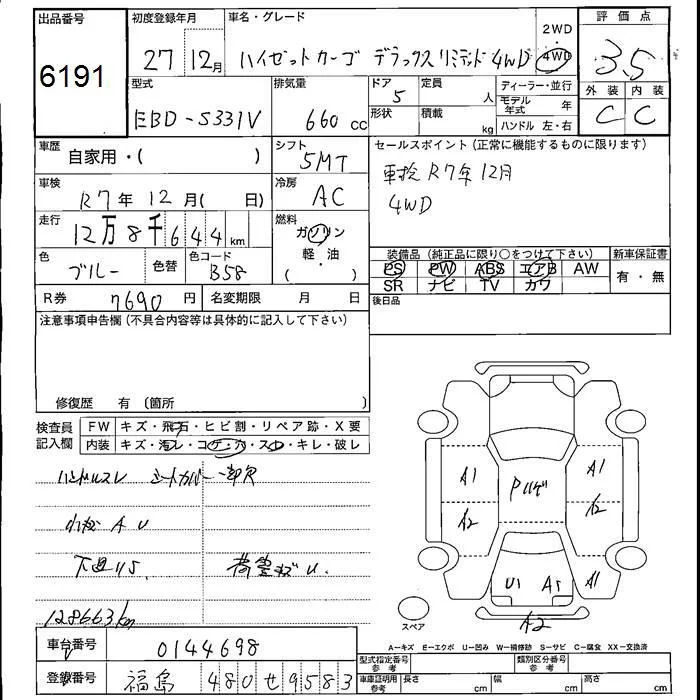 出品番号
6191
初度登録年月
27年12月
車名・グレード
ハイゼットカーゴ デラックスリミテッド 4WD
2WD
・
4WD
評価点
3.5
外装 内装
C C
型式
EBD-S331V
排気量
660 cc
ドア
5
形状
定員
人
積載
kg
ディーラー・並行
モデル年式 年
ハンドル 左・右
車歴
自家用・( )
シフト
5MT
セールスポイント(正常に機能するものに限ります)
車検 R7年12月
4WD
車検
R7年12月( 日)
冷房
AC
走行
12万8千644km
燃料
ガソリン
軽・油
( )
色
ブルー
色替
色コード
B58
装備品(純正品に限り○をつけて下さい)
PS PW ABS エアB AW
SR ナビ TV カワ
新車保証書
有・無
R券 7690円
名変期限 月 日
後日品
注意事項申告欄(不具合内容等は具体的に記入して下さい)
修復歴 有(箇所 )
検査員記入欄
FW キズ・飛石・ヒビ割・リペア跡・X要
内装 キズ・汚レ・コゲ・穴・スレ・キレ・破レ
ハンドルスレ シートカバー一部欠
小松 A U
下廻りS. 荷室キズ U.
128663km
A1
A2
A1
A2
A1
U1
A2
スペア
A-キズ E-エクボ U-凹み W-補修跡 S-サビ C-腐食 XX-交換済
車台番号
0144698
登録番号
福島 480 せ 9583
型式指定番号 参考
類別区分番号 参考
車庫証明用 参考
長さ cm
幅 cm
高さ cm